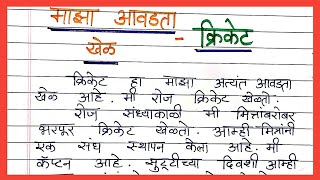 माझा आवडता
खेळ - क्रिकेट
क्रिकेट हा माझा अत्यंत आवडता
खेळ आहे. मी रोज क्रिकेट खेळतो.
रोज संध्याकाळी मी मित्रांबरोबर
भरपूर क्रिकेट खेळतो. आम्ही मित्रांनी
एक संघ स्थापन केला आहे. मी
कॅप्टन आहे. सुट्टीच्या दिवशी आम्ही